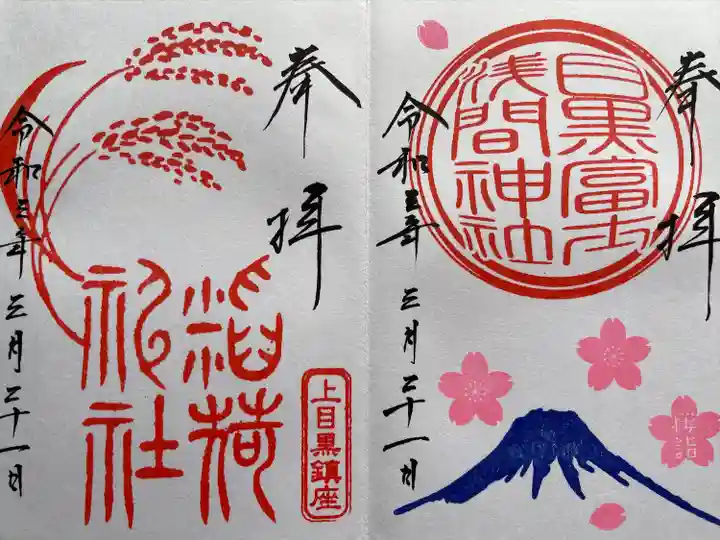 奉拝
稲荷
社
令和三年 三月二十一日
上目黒鎮座
奉拝
目黒富士
浅間神社
令和三年 三月二十一日
桜詣